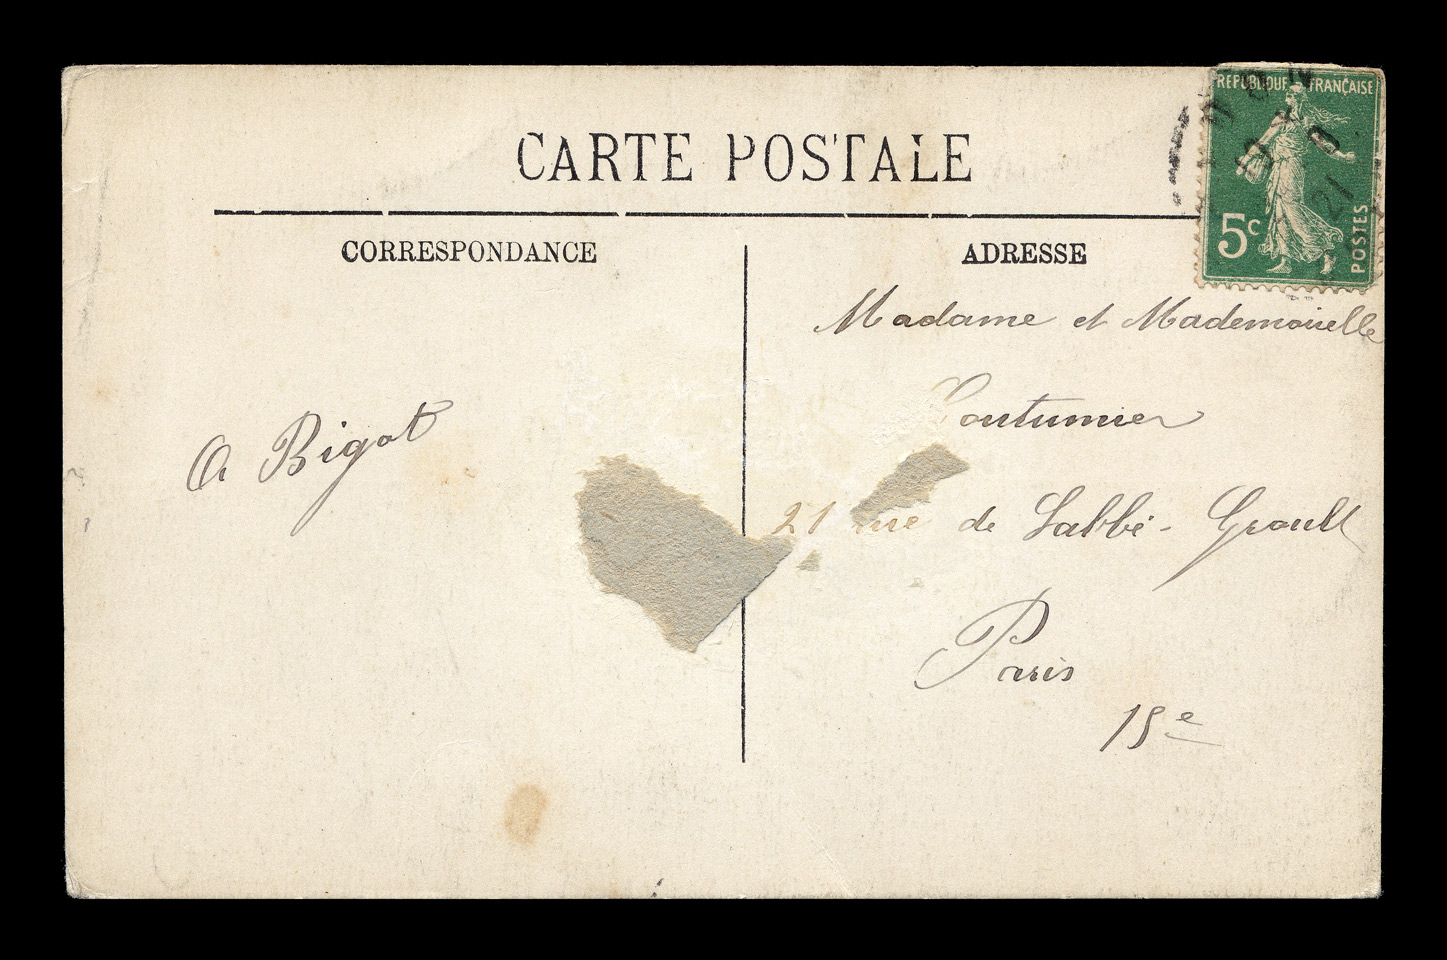 CARTE POSTALE
REPUBLIQUE FRANÇAISE
5c
POSTES
21
CORRESPONDANCE
ADRESSE
Madame et Mademoiselle
Coutumier
A Bigot
21 rue de Labbé-Groult
Paris
15e